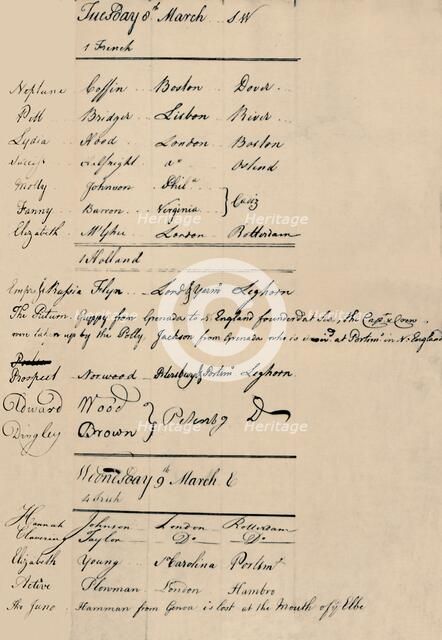 Tuesday 8th March . . S W
1 French
Neptune Coffin . . Boston . . . Dover . .
Pitt . . Bridger . . Lisbon . . River . .
Lydia . . Hood . . London . . Boston
Success . . do Ostend
Molly . . Johnson . Phila
Fanny . . Barron . . Virginia . } Cadiz
Elizabeth McPhee . . London . . Rotterdam
1 Holland
Empss of Russia Flyn . . Lond & Yarm Leghorn
The Pition. Guppy from Grenada to N England founderd at Sea, the Capt & Crew
were taken up by the Polly, Jackson from Grenada who is at Portsmo in N. England
Prospect Norwood . Petersburg & Portsmo Leghorn
Edward Wood
Dingley Brown } Petersbg Do
Wednesday 9th March E
4 Irish
Hannah Johnson . London . Rotterdam
Clavering Taylor . . Do . . Do
Elizabeth Young . . So Carolina Portsmo
Active . Plowman London Hambro
The Juno . Hamman from Genoa is lost at the Mouth of ye Elbe
© Heritage Images
Heritage